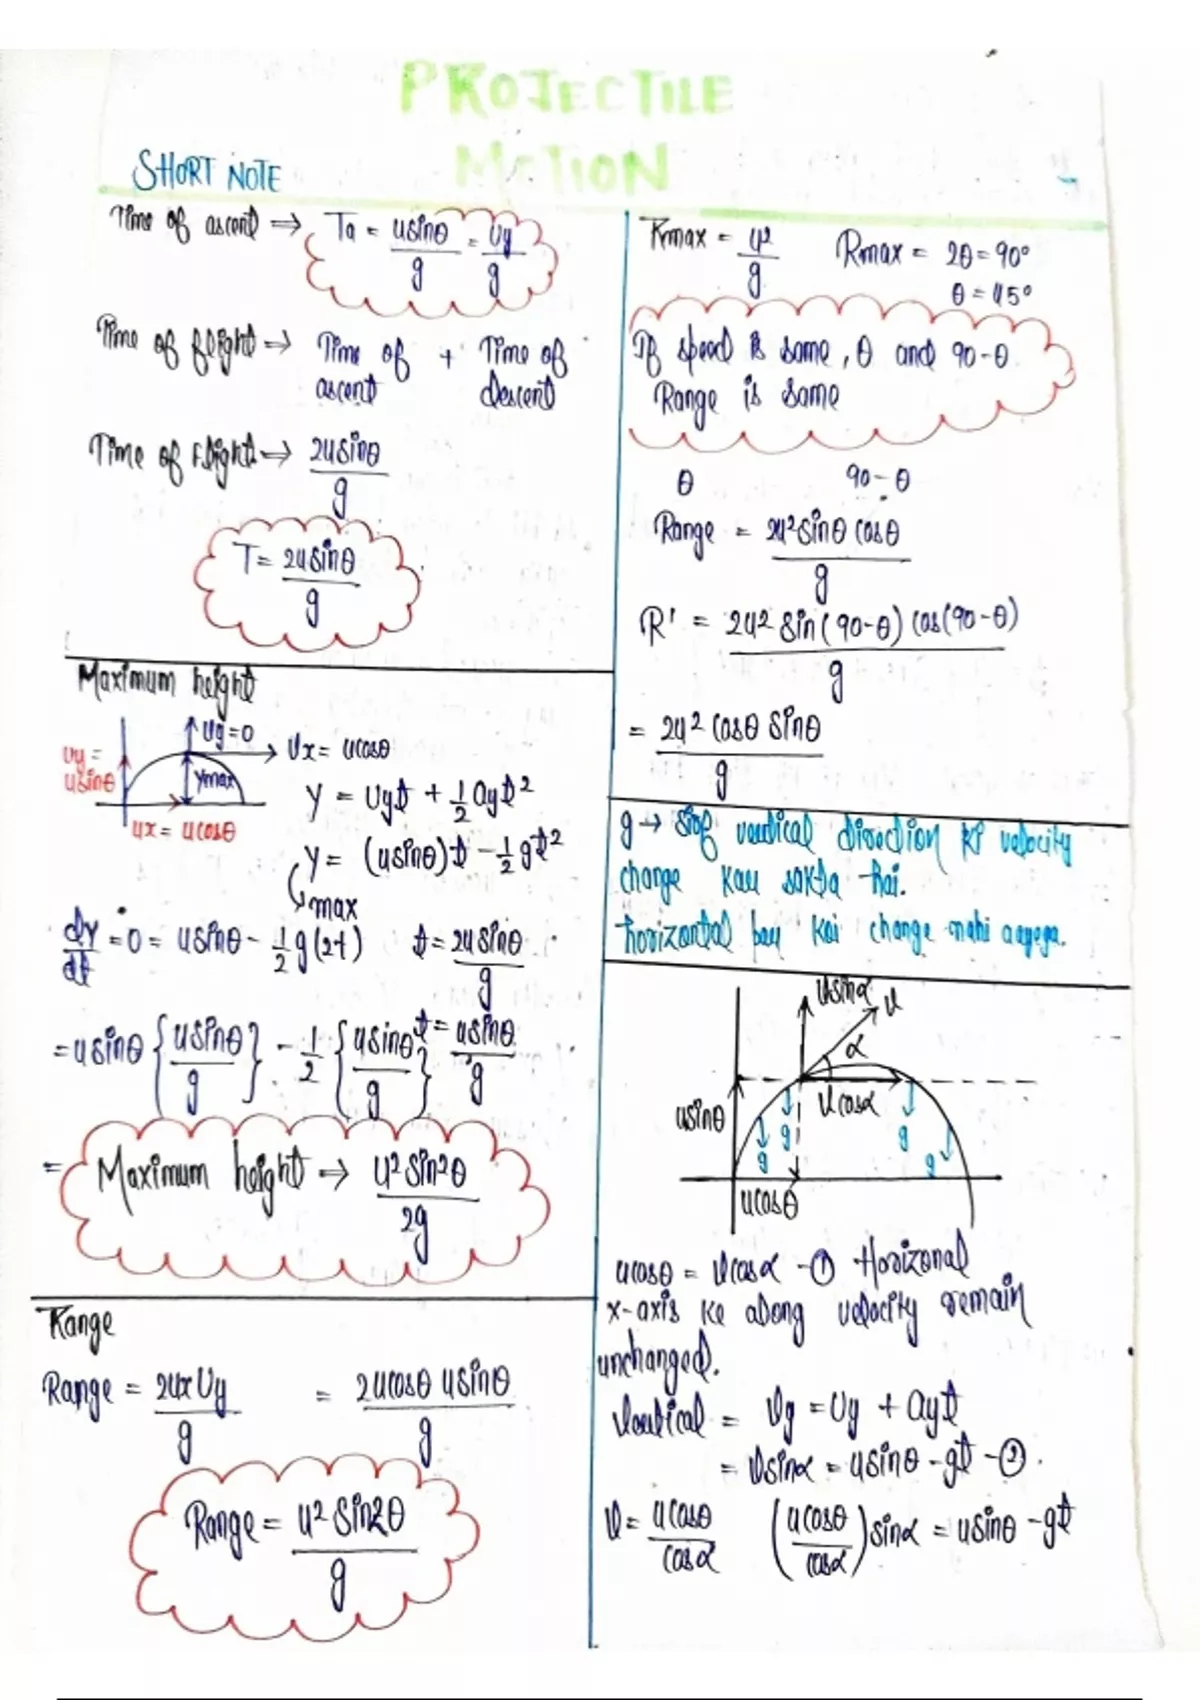 PROJECTILE
MOTION
SHORT NOTE
Time of ascent ⇒ Ta = usinθ/g = Uy/g
Time of flight ⇒ Time of ascent + Time of descent
Time of flight → 2usinθ/g
T = 2usinθ/g
Maximum height
Uy=0
Vy = usinθ
Ymax
Ux = ucosθ
ux = ucosθ
y = Uyt + 1/2 ayt²
y = (usinθ)t - 1/2 gt²
max
dy/dt = 0 = usinθ - 1/2 g(2t)
t = 2usinθ/g
t = usinθ/g
= usinθ {usinθ/g} - 1/2 {usinθ/g}
= Maximum height ⇒ u² sin²θ/2g
Range
Range = 2ux Uy/g = 2ucosθ usinθ/g
Range = u² sin2θ/g
Rmax = u²/g
Rmax = 2θ = 90°
θ = 45°
If speed is same, θ and 90-θ
Range is same
θ 90-θ
Range = 2u² sinθ cosθ/g
R' = 2u² sin(90-θ) cos(90-θ)/g
= 2u² cosθ sinθ/g
g → sirf vertical direction ki velocity
change kar sakta hai.
horizontal par koi change nahi aayega.
vsinα
v
α
vcosα
usinθ
g
g
g
g
ucosθ
ucosθ = vcosα -① Horizonal
x-axis ke along velocity remain
unchanged.
Vertical = Vy = Uy + ayt
= vsinα = usinθ - gt -②.
v = ucosθ/cosα (ucosθ/cosα) sinα = usinθ - gt